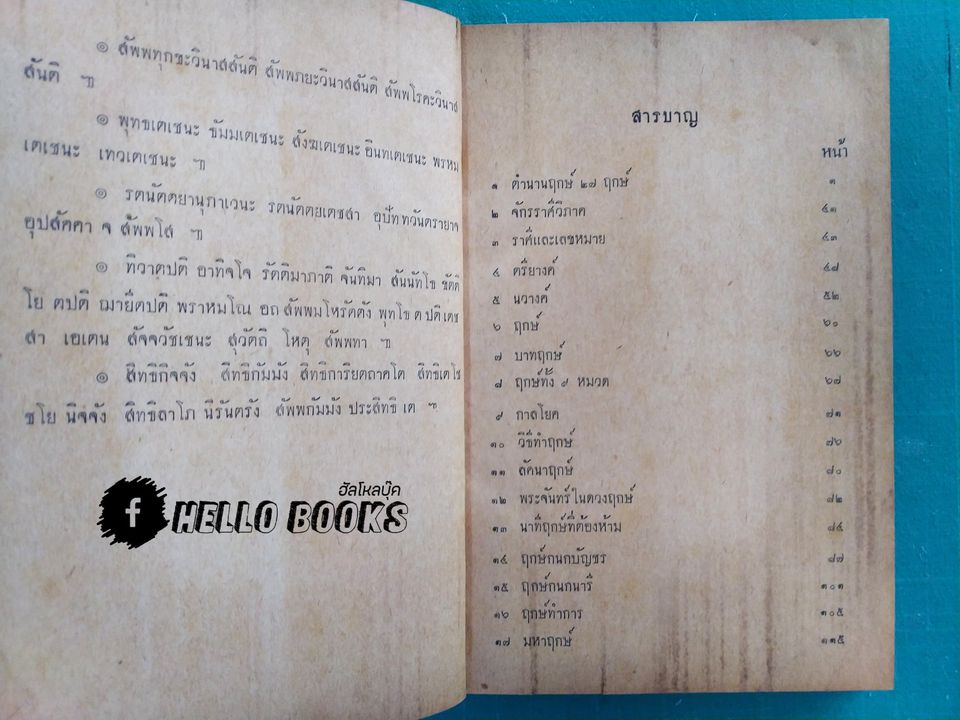 ๏ สัพพทุกขะวินาสสันติ สัพพภยะวินาสสันติ สัพพโรคะวินาส
สันติ ฯ
๏ พุทธเตเชนะ ธัมมเตเชนะ สังฆเตเชนะ อินทเตเชนะ พรหม
เตเชนะ เทวเตเชนะ ฯ
๏ รตนัตตยานุภาเวนะ รตนัตตยเตชสา อุปัททวันตรายาจ
อุปสัคคา จ สัพพโส ฯ
๏ ทิวาตปติ อาทิจโจ รัตติมาภาติ จันทิมา สันนัทโธ ขัตติ
โย ตปติ ฌายีตปติ พราหมโณ อถ สัพพมโหรัตตัง พุทโธ ตปติเตช
สา เอเตน สัจจวัชเชนะ สุวัตถิ โหตุ สัพพทา ฯ
๏ สิทธิกิจจัง สิทธิกัมมัง สิทธิการิยตถาคโต สิทธิเตโช
ชโย นิจจัง สิทธิลาโภ นิรันตรัง สัพพกัมมัง ประสิทธิ เต ฯ
ฮัลโหลบุ๊ค
f HELLO BOOKS
สารบาญ
หน้า
๑ ตำนานฤกษ์ ๒๗ ฤกษ์ ๑
๒ จักรราศีวิภาค ๔๑
๓ ราศีและเลขหมาย ๔๓
๔ ตรียางค์ ๔๘
๕ นวางค์ ๕๒
๖ ฤกษ์ ๖๐
๗ บาทฤกษ์ ๖๖
๘ ฤกษ์ทั้ง ๙ หมวด ๖๘
๙ กาลโยค ๗๑
๑๐ วิธีทำฤกษ์ ๗๖
๑๑ ลัคนาฤกษ์ ๘๐
๑๒ พระจันทร์ในดวงฤกษ์ ๘๒
๑๓ นาทีฤกษ์ที่ต้องห้าม ๘๕
๑๔ ฤกษ์กนกบัญชร ๘๗
๑๕ ฤกษ์กนกนารี ๑๐๑
๑๖ ฤกษ์ทำการ ๑๐๕
๑๗ มหาฤกษ์ ๑๑๕